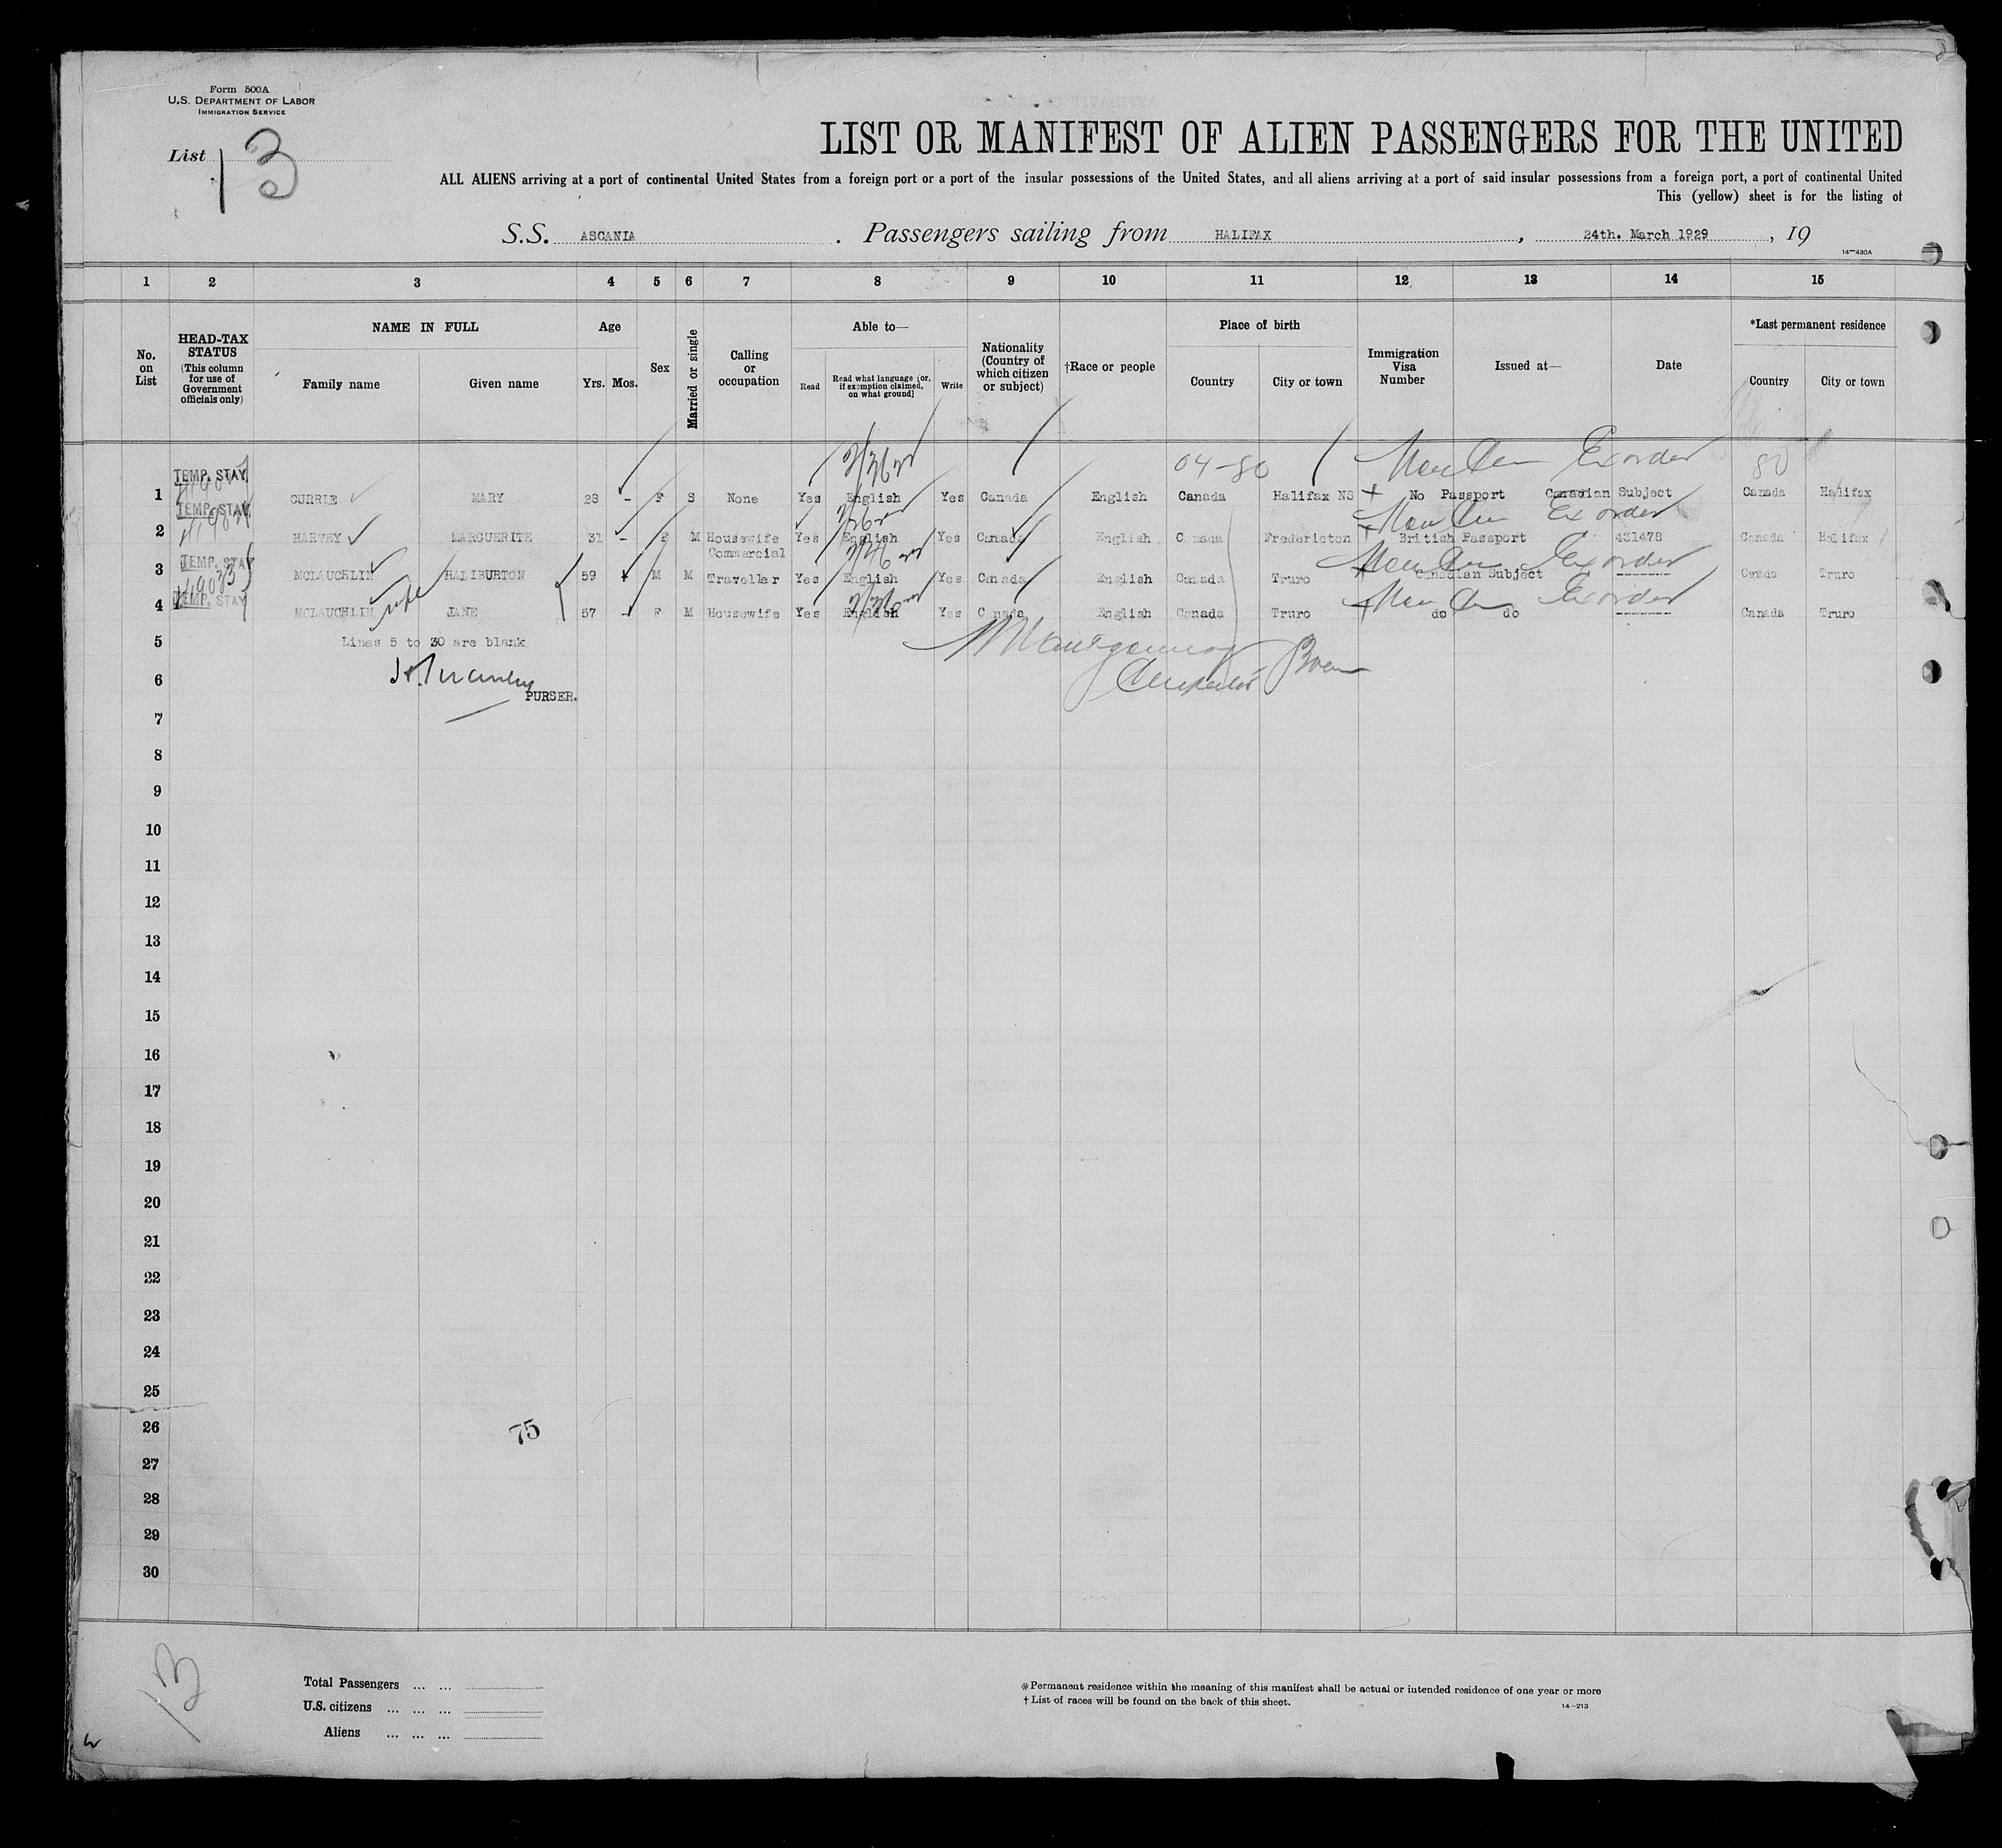 Form 500A
U.S. DEPARTMENT OF LABOR
IMMIGRATION SERVICE
List 13
LIST OR MANIFEST OF ALIEN PASSENGERS FOR THE UNITED
ALL ALIENS arriving at a port of continental United States from a foreign port or a port of the insular possessions of the United States, and all aliens arriving at a port of said insular possessions from a foreign port, a port of continental United
This (yellow) sheet is for the listing of
S.S. ASCANIA . Passengers sailing from HALIFAX , 24th. March 1929 , 19
14—480A
1 2 3 4 5 6 7 8 9 10 11 12 13 14 15
No. on List
HEAD-TAX STATUS
(This column for use of Government officials only)
NAME IN FULL
Family name Given name
Age
Yrs. Mos.
Sex
Married or single
Calling or occupation
Able to—
Read
Read what language [or, if exemption claimed, on what ground]
Write
Nationality (Country of which citizen or subject)
†Race or people
Place of birth
Country City or town
Immigration Visa Number
Issued at—
Date
*Last permanent residence
Country City or town
04-80 Ex order 80
TEMP. STAY
1 CURRIE MARY 28 - F S None Yes English Yes Canada English Canada Halifax NS No Passport Canadian Subject Canada Halifax
TEMP. STAY Ex order
2 HARVEY MARGUERITE 31 - F M Housewife Yes English Yes Canada English Canada Fredericton British Passport 431478 Canada Halifax
TEMP. STAY Commercial Ex order
3 MCLAUCHLIN HALIBURTON 59 M M Traveller Yes English Yes Canada English Canada Truro Canadian Subject ------- Canada Truro
TEMP. STAY wife Ex order
4 MCLAUCHLIN JANE 57 - F M Housewife Yes English Yes Canada English Canada Truro do do ------- Canada Truro
5 Lines 5 to 30 are blank
6
PURSER.
7
8
9
10
11
12
13
14
15
16
17
18
19
20
21
22
23
24
25
26 75
27
28
29
30
13
Total Passengers ... ...
U.S. citizens ... ... ...
Aliens ... ... ...
*Permanent residence within the meaning of this manifest shall be actual or intended residence of one year or more
† List of races will be found on the back of this sheet.
14—213